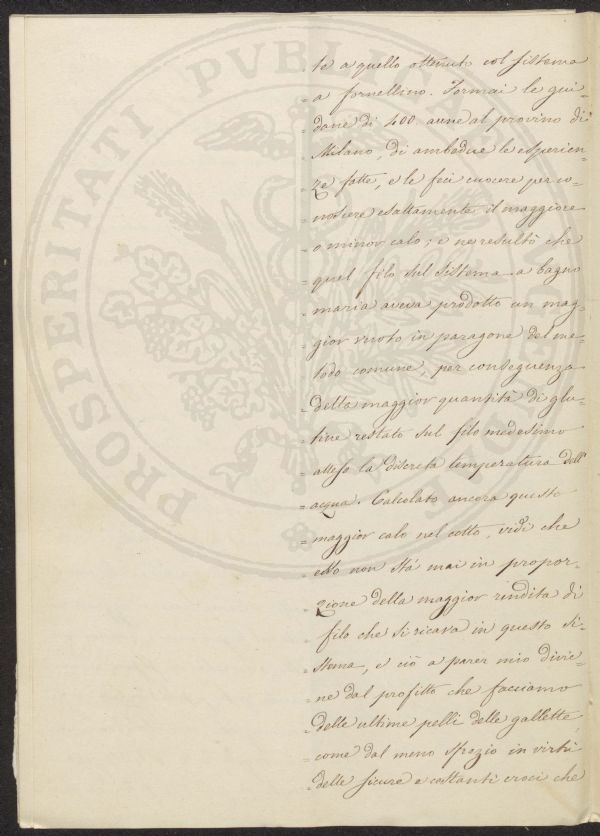 PROSPERITATI PVBLICAE
te a quello ottenuto col sistema
a fornellino. Formai le gui-
dane di 400 aune al provino di
Milano, di ambedue le esperien-
ze fatte, e le feci cuocere per co-
noscere esattamente il maggiore
o minor calo; e ne resultò che
quel filo sul sistema a bagno
maria aveva prodotto un mag-
gior vuoto in paragone del me-
todo comune, per conseguenza
della maggior quantità di glu-
tine restato sul filo medesimo
attesa la discreta temperatura dell'
acqua. Calcolato ancora questo
maggior calo nel cotto, vidi che
esso non stà mai in propor-
zione della maggior rendita di
filo che si ricava in questo si-
stema, e ciò a parer mio divie-
ne dal profitto che facciamo
delle ultime pelli delle gallette,
come dal meno sfrazio in virtù
delle sicure e costanti croci che